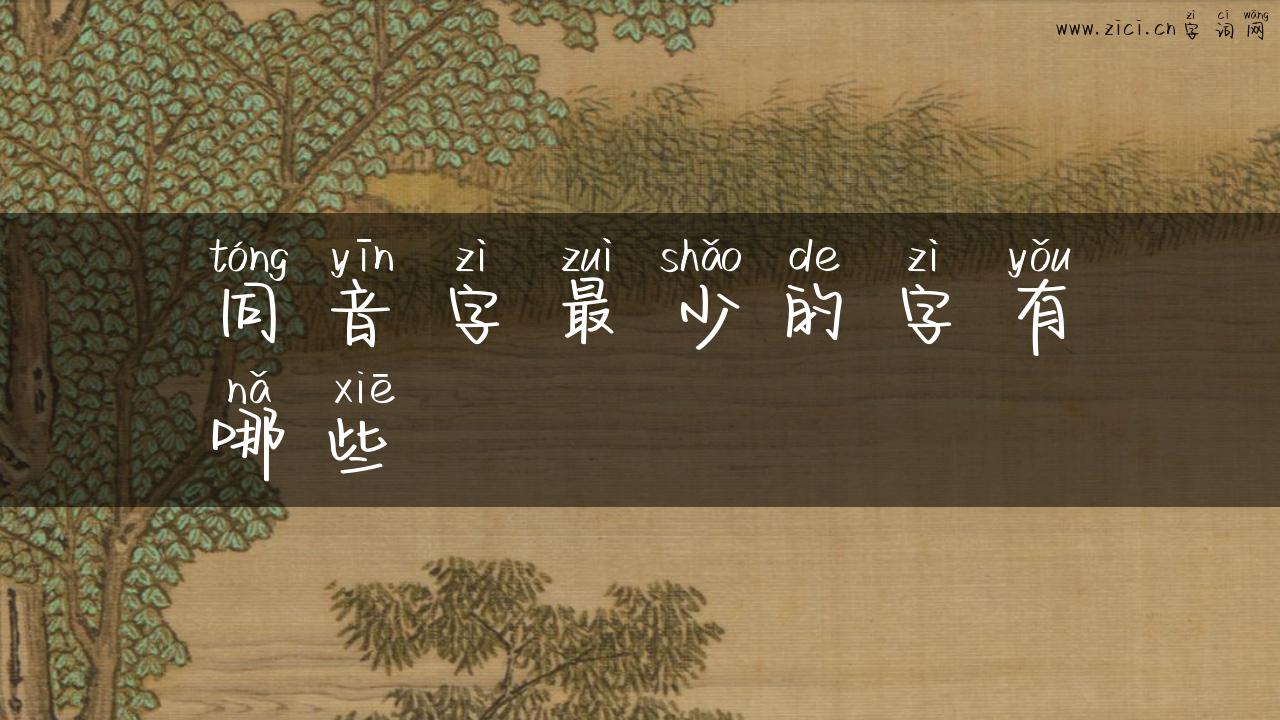 zì cí wǎng
www.zici.cn字词网
tóng yīn zì zuì shǎo de zì yǒu
同音字最少的字有
nǎ xiē
哪些